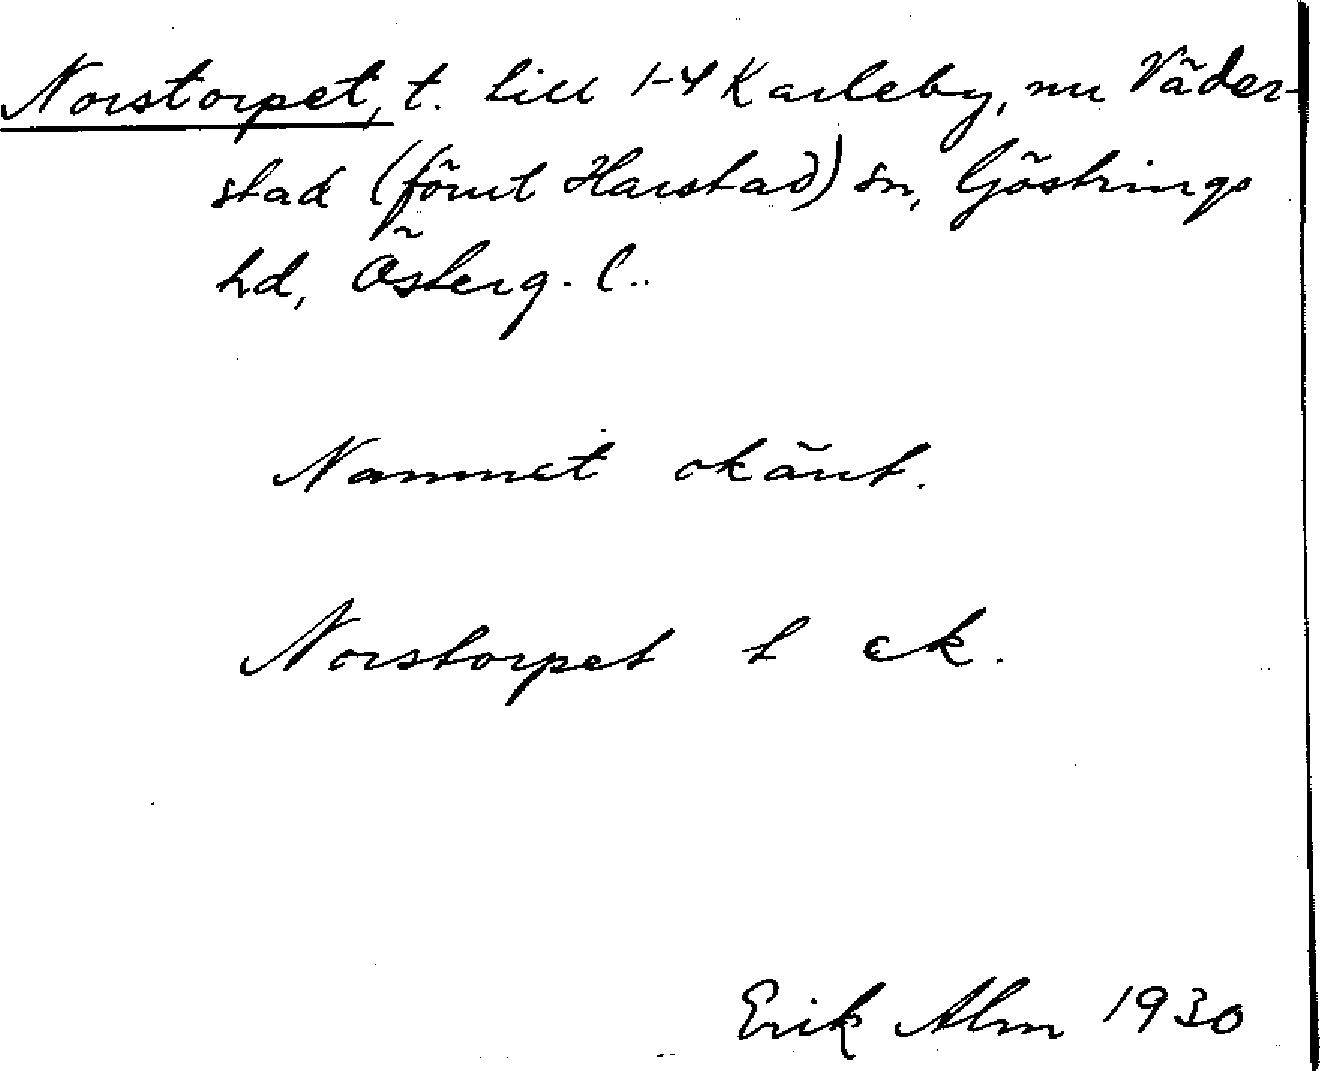 Norstorpet, t. till 1-4 Karleby, nu Väder-
stad (förut Harstad) sn, Göstrings
hd, Österg. l..
Namnet okänt.
Norstorpet t ek.
Erik Alm 1930